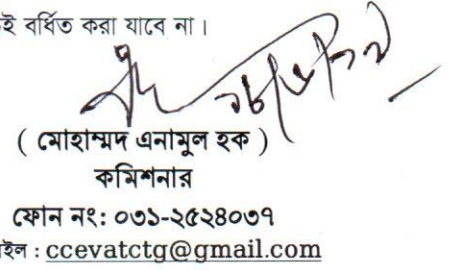 বর্ধিত করা যাবে না।
( মোহাম্মদ এনামুল হক )
কমিশনার
ফোন নং: ০৩১-২৫২৪০৩৭
: ccevatctg@gmail.com